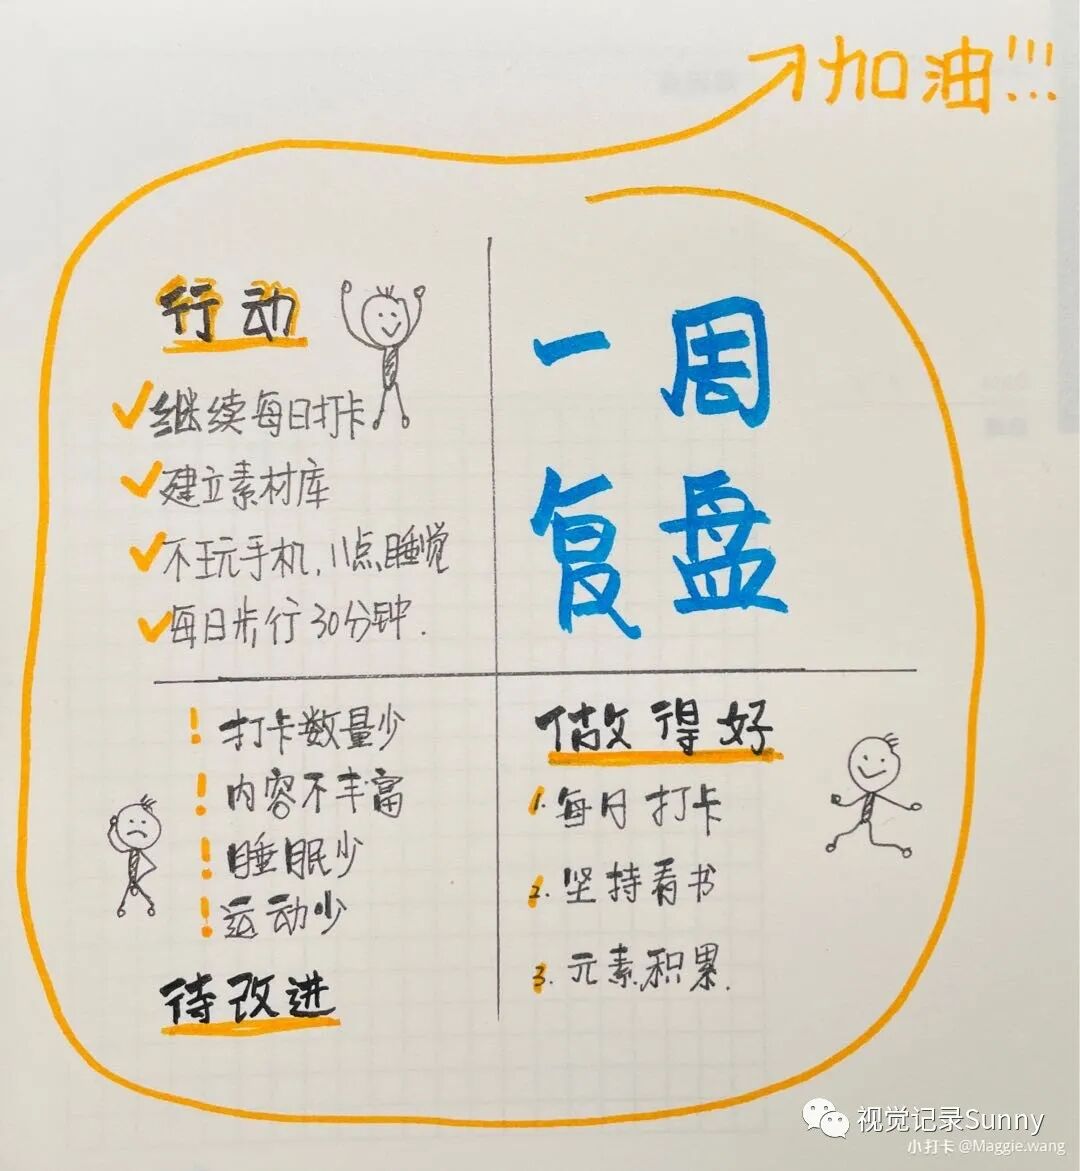 加油!!!
一周
复盘
做得好
1. 每日打卡
2. 坚持看书
3. 元素积累.
! 打卡数量少
! 内容不丰富
! 睡眠少
! 运动少
待改进
行动
✓继续每日打卡
✓建立素材库
✓不玩手机,11点睡觉
✓每日步行30分钟.
视觉记录Sunny
小打卡 @Maggie.wang